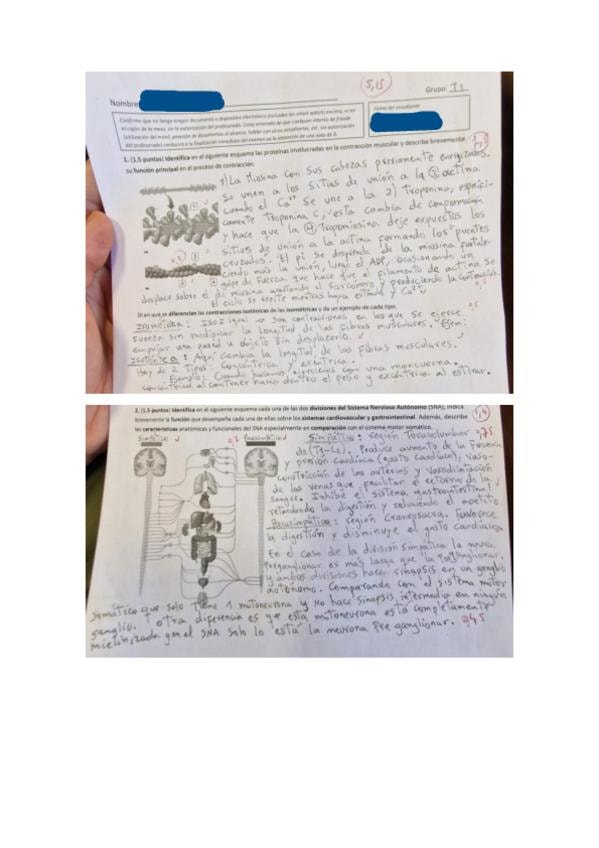 5,15
Nombre
Grupo: I1
Confirmo que no tengo ningún documento o dispositivo electrónico (incluidos los smart watch) encima, ni en
el cajón de la mesa, sin la autorización del profesorado. Estoy enterado de que cualquier intento de fraude
(utilización del móvil, posesión de documentos al alcance, hablar con otros estudiantes, etc. sin autorización
del profesorado) conducirá a la finalización inmediata del examen
Firma del estudiante
1. (1,5 puntos) Identifica en el siguiente esquema las proteínas involucradas en la contracción muscular y describe brevemente
su función principal en el proceso de contracción.
1) La Miosina con sus cabezas previamente energizadas
se unen a los sitios de unión a la 3 actina
cuando el Ca++ se une a la 2) troponina, específi-
camente Troponina C, esta cambia de conformación
y hace que la 4 tropomiosina deje expuestos los
sitios de unión a la actina formando los "puentes
cruzados. El pi se desprende de la miosina fortale-
ciendo más la unión, luego el ADP, ocasionando un
golpe de fuerza que hace que el filamento de actina se
desplace sobre el de miosina acortando el sarcómero y produciendo la contracción.
El ciclo se repite mientras haya ATP y Ca++
Di en qué se diferencian las contracciones isotónicas de las isométricas y da un ejemplo de cada tipo.
Isométrica: Iso= igual → son contracciones en los que se ejerce
fuerza sin modificar la longitud de las fibras musculares. Ejem:
empujar una pared u objeto sin desplazarlo.
Isotónica: Aquí cambia la longitud de las fibras musculares.
Hay de 2 tipos: Concéntrica y excéntrica.
Ejemplo: Cuando hacemos ejercicios con una mancuerna.
concéntrica al contraer hacia dentro el peso y excéntrica al estirar.
2. (1,5 puntos) Identifica en el siguiente esquema cada una de las dos divisiones del Sistema Nervioso Autónomo (SNA), indica
brevemente la función que desempeña cada una de ellas sobre los sistemas cardiovascular y gastrointestinal. Además, describe
las características anatómicas y funcionales del SNA especialmente en comparación con el sistema motor somático.
1,4
Simpático
Parasimpático
Simpático: región Toracolumbar
0,75
Produce aumento de la Frecuencia
y presión cardíaca (gasto cardíaco), vaso-
constricción de las arterias y vasodilatación
de las venas que facilitan el retorno de la
sangre. Inhibe el sistema gastrointestinal
retardando la digestión y reduciendo el apetito
Parasimpático: región Craneosacra. Favorece
la digestión y disminuye el gasto cardíaco
En el caso de la división simpática la neurona
Preganglionar es más larga que la
y ambas divisiones hacen sinapsis en un ganglio
autónomo. Comparando con el sistema motor
somático que solo tiene 1 motoneurona y no hace sinapsis intermedia en ningún
ganglio. otra diferencia es que esta motoneurona está completamente
mielinizada y en el SNA solo lo está la neurona Pre ganglionar.